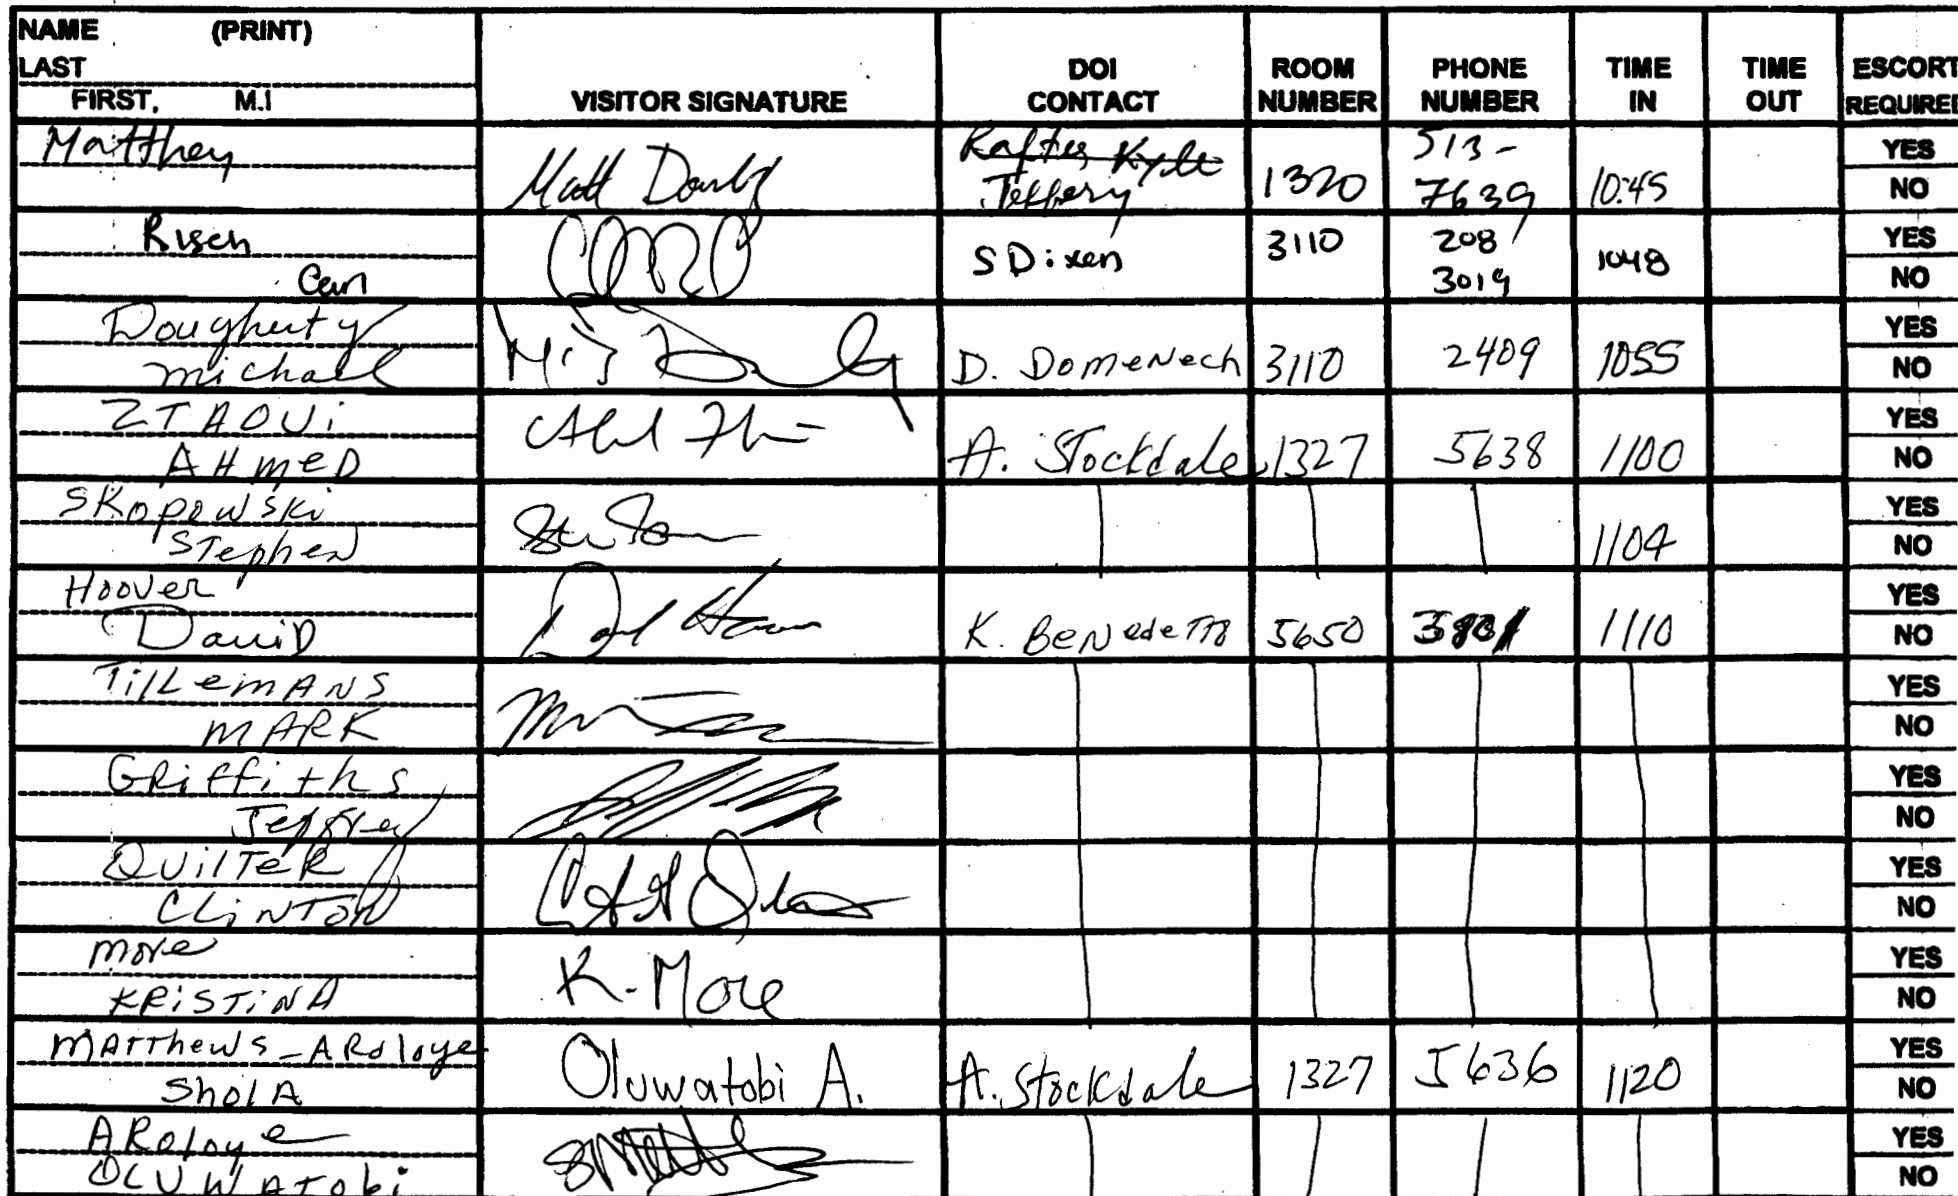 NAME (PRINT)
LAST
FIRST, M.I
VISITOR SIGNATURE
DOI CONTACT
ROOM NUMBER
PHONE NUMBER
TIME IN
TIME OUT
ESCORT REQUIRED
Matthey
Matt
Jeffery
1320
513-
7639
10:45
YES
NO
Risch
Carl
S Dixen
3110
208
3019
1048
YES
NO
Dougherty
Michael
D. Domenech
3110
2409
1055
YES
NO
ZTAOUi
AHmeD
A. Stockdale
1327
5638
1100
YES
NO
SKopowski
Stephen
1104
YES
NO
Hoover
DaviD
K. Benedetto
5650
1110
YES
NO
TillemANS
MARK
YES
NO
GRiffiths
Jeffrey
YES
NO
QuilTeR
CLiNTON
YES
NO
more
KRiSTiNA
K. More
YES
NO
MATThewS-ARoloye
SholA
Oluwatobi A.
A. Stockdale
1327
5636
1120
YES
NO
ARoloye
OLUWATobi
YES
NO